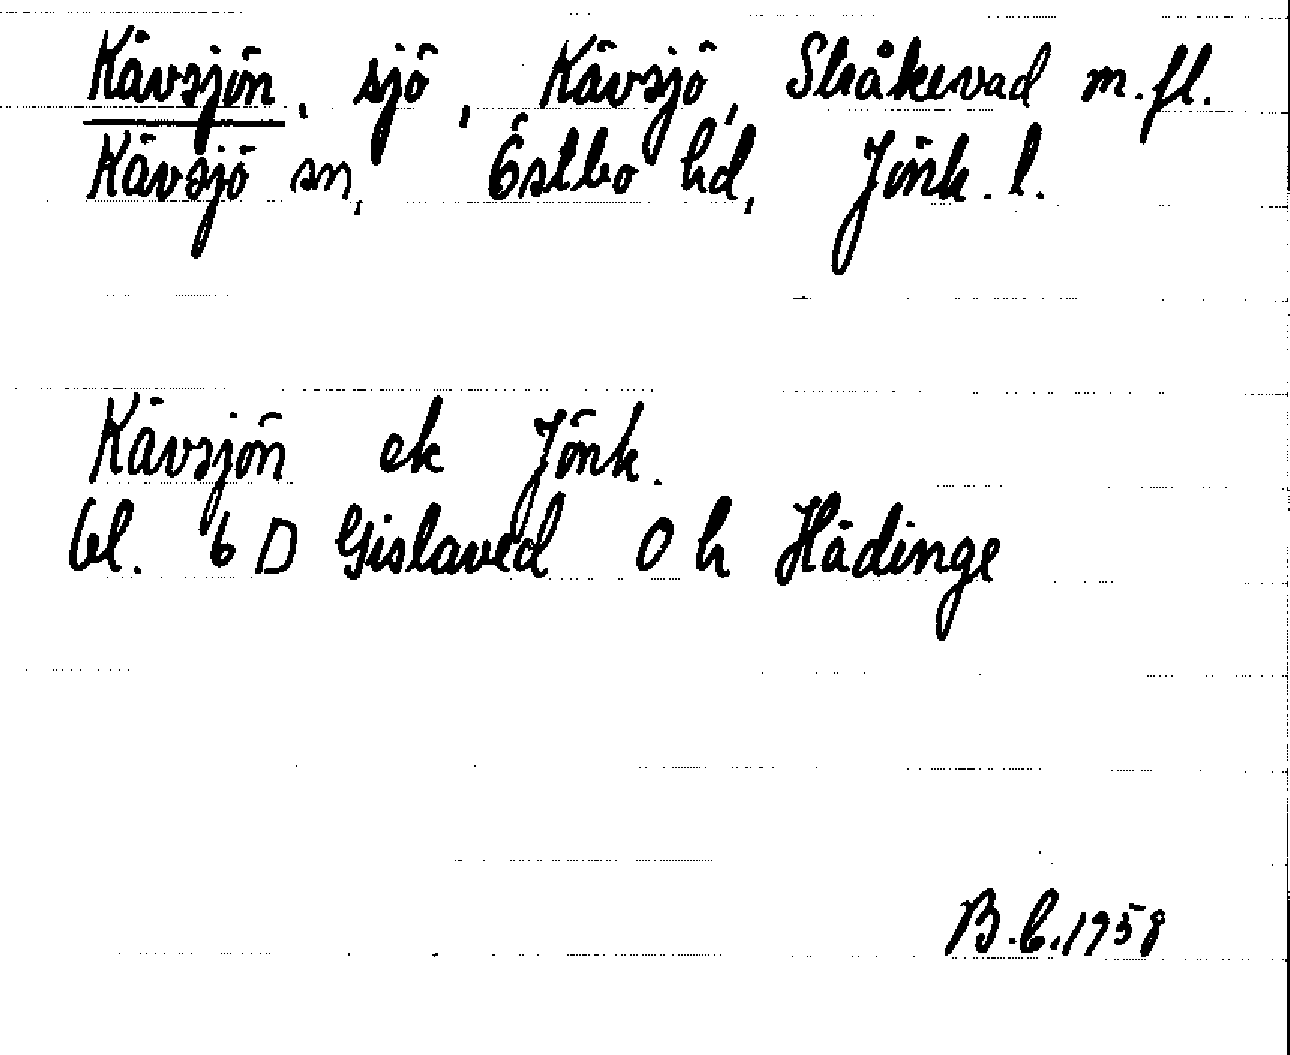 Kävsjön, sjö, Kävsjö, Stråkevad m.fl.
Kävsjö sn, Östbo hd, Jönk. l.
Kävsjön ek Jönk.
bl. 6 D Gislaved 0 h Hådinge
B.C. 1958